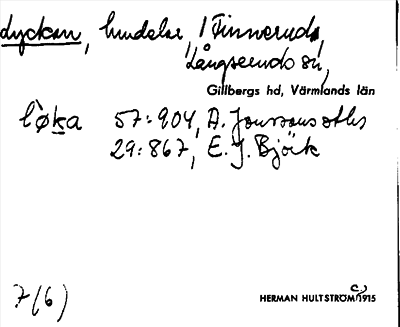 Lyckan, hmdelar, i Finneruds,
Långseruds sn,
Gillbergs hd, Värmlands län
lø̀ka 57:904, A. Jonssons
29:867, E. J. Björk
7(6)
HERMAN HULTSTRÖM 1915